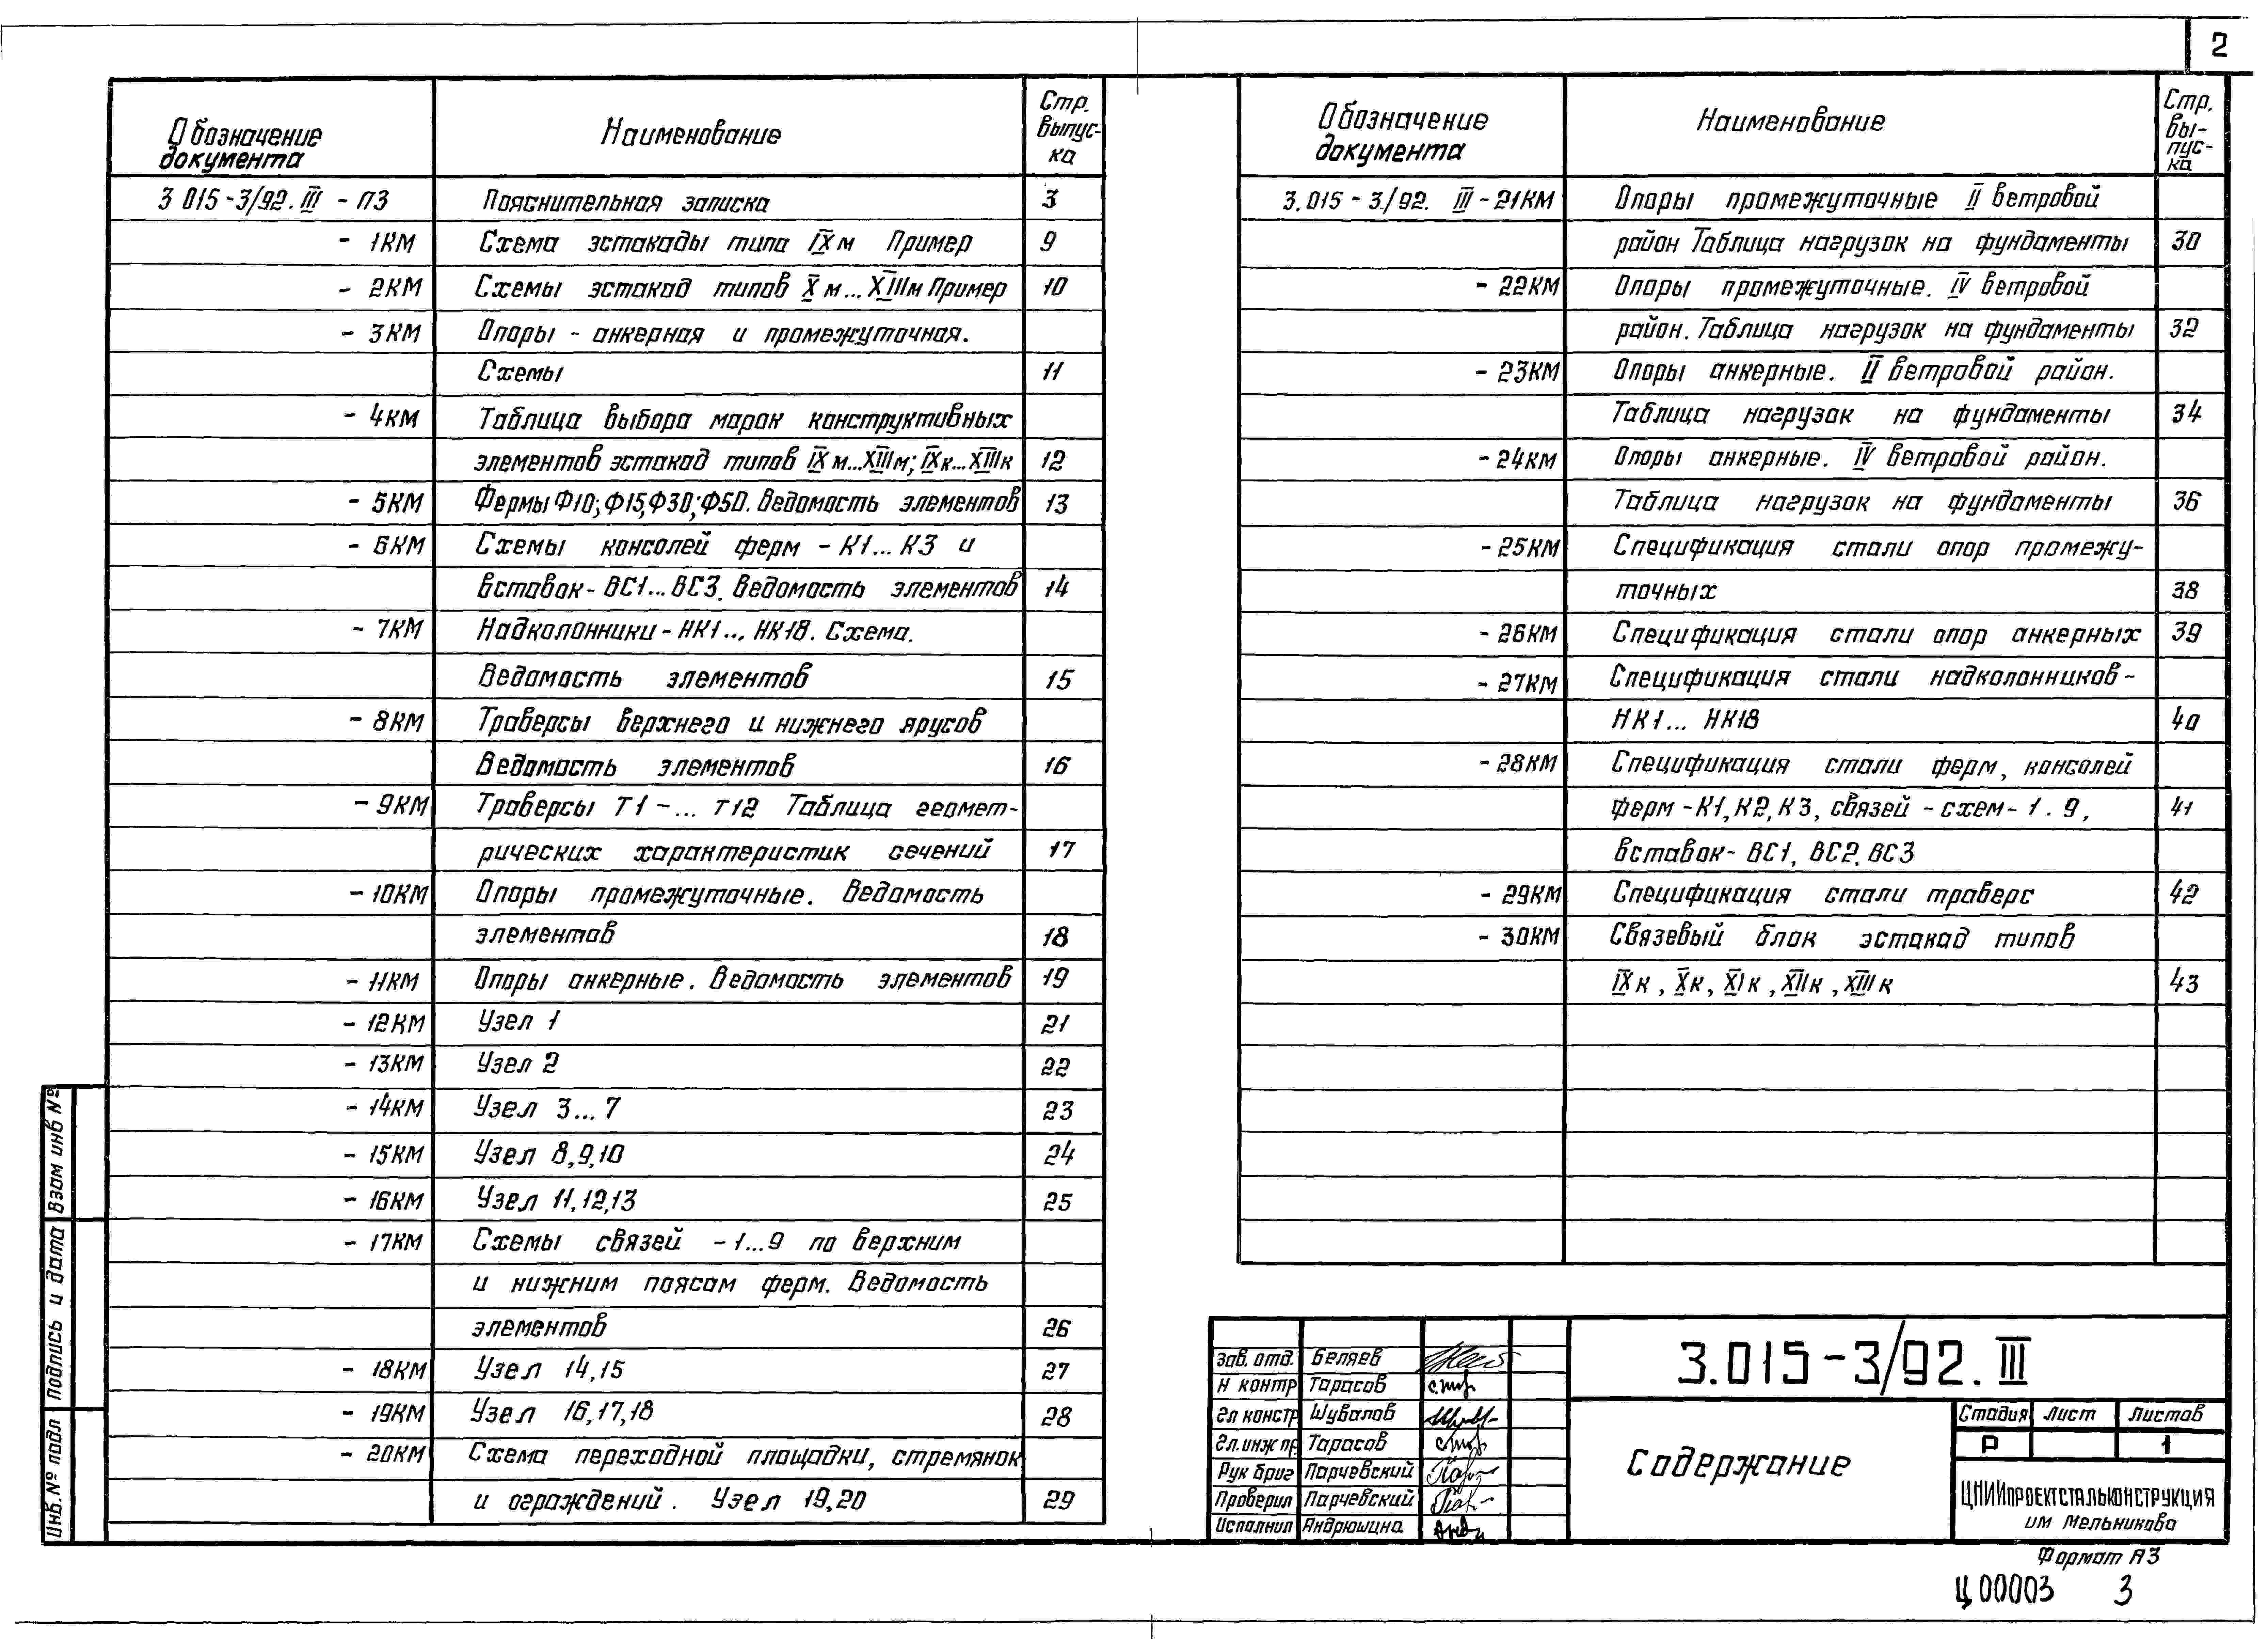 2
Обозначение документа Наименование Стр. выпус- ка
3 015-3/92. III - ПЗ Пояснительная записка 3
- 1КМ Схема эстакады типа IXм Пример 9
- 2КМ Схемы эстакад типов Xм...XIIIм Пример 10
- 3КМ Опоры - анкерная и промежуточная.
Схемы 11
- 4КМ Таблица выбора марок конструктивных
элементов эстакад типов IXм...XIIIм; IXк...XIIIк 12
- 5КМ Фермы Ф10; Ф15, Ф30; Ф50. Ведомость элементов 13
- 6КМ Схемы консолей ферм - К1... К3 и
вставок - ВС1... ВС3. Ведомость элементов 14
- 7КМ Надколонники - НК1... НК18. Схема.
Ведомость элементов 15
- 8КМ Траверсы верхнего и нижнего ярусов
Ведомость элементов 16
- 9КМ Траверсы Т1 - ... Т12 Таблица геомет-
рических характеристик сечений 17
- 10КМ Опоры промежуточные. Ведомость
элементов 18
- 11КМ Опоры анкерные. Ведомость элементов 19
- 12КМ Узел 1 21
- 13КМ Узел 2 22
- 14КМ Узел 3... 7 23
- 15КМ Узел 8, 9, 10 24
- 16КМ Узел 11, 12, 13 25
- 17КМ Схемы связей - 1...9 по верхним
и нижним поясам ферм. Ведомость
элементов 26
- 18КМ Узел 14, 15 27
- 19КМ Узел 16, 17, 18 28
- 20КМ Схема переходной площадки, стремянок
и ограждений. Узел 19, 20 29
Обозначение документа Наименование Стр. вы- пус- ка
3.015 - 3/92. III - 21КМ Опоры промежуточные II ветровой
район Таблица нагрузок на фундаменты 30
- 22КМ Опоры промежуточные. IV ветровой
район. Таблица нагрузок на фундаменты 32
- 23КМ Опоры анкерные. II ветровой район.
Таблица нагрузок на фундаменты 34
- 24КМ Опоры анкерные. IV ветровой район.
Таблица нагрузок на фундаменты 36
- 25КМ Спецификация стали опор промежу-
точных 38
- 26КМ Спецификация стали опор анкерных 39
- 27КМ Спецификация стали надколонников -
НК1... НК18 40
- 28КМ Спецификация стали ферм, консолей
ферм - К1, К2, К3, связей - схем - 1 . 9, 41
вставок - ВС1, ВС2, ВС3
- 29КМ Спецификация стали траверс 42
- 30КМ Связевый блок эстакад типов
IXк, Xк, XIк, XIIк, XIIIк 43
Взам инв №
Подпись и дата
Инв. № подл
Зав. отд. Беляев
Н контр Тарасов
Гл констр Шувалов
Гл. инж пр. Тарасов
Рук бриг Парчевский
Проверил Парчевский
Исполнил Андрюшина
3.015-3/92. III
Содержание
Стадия Лист Листов
Р 1
ЦНИИПРОЕКТСТАЛЬКОНСТРУКЦИЯ
им Мельникова
Формат А3
Ц00003 3